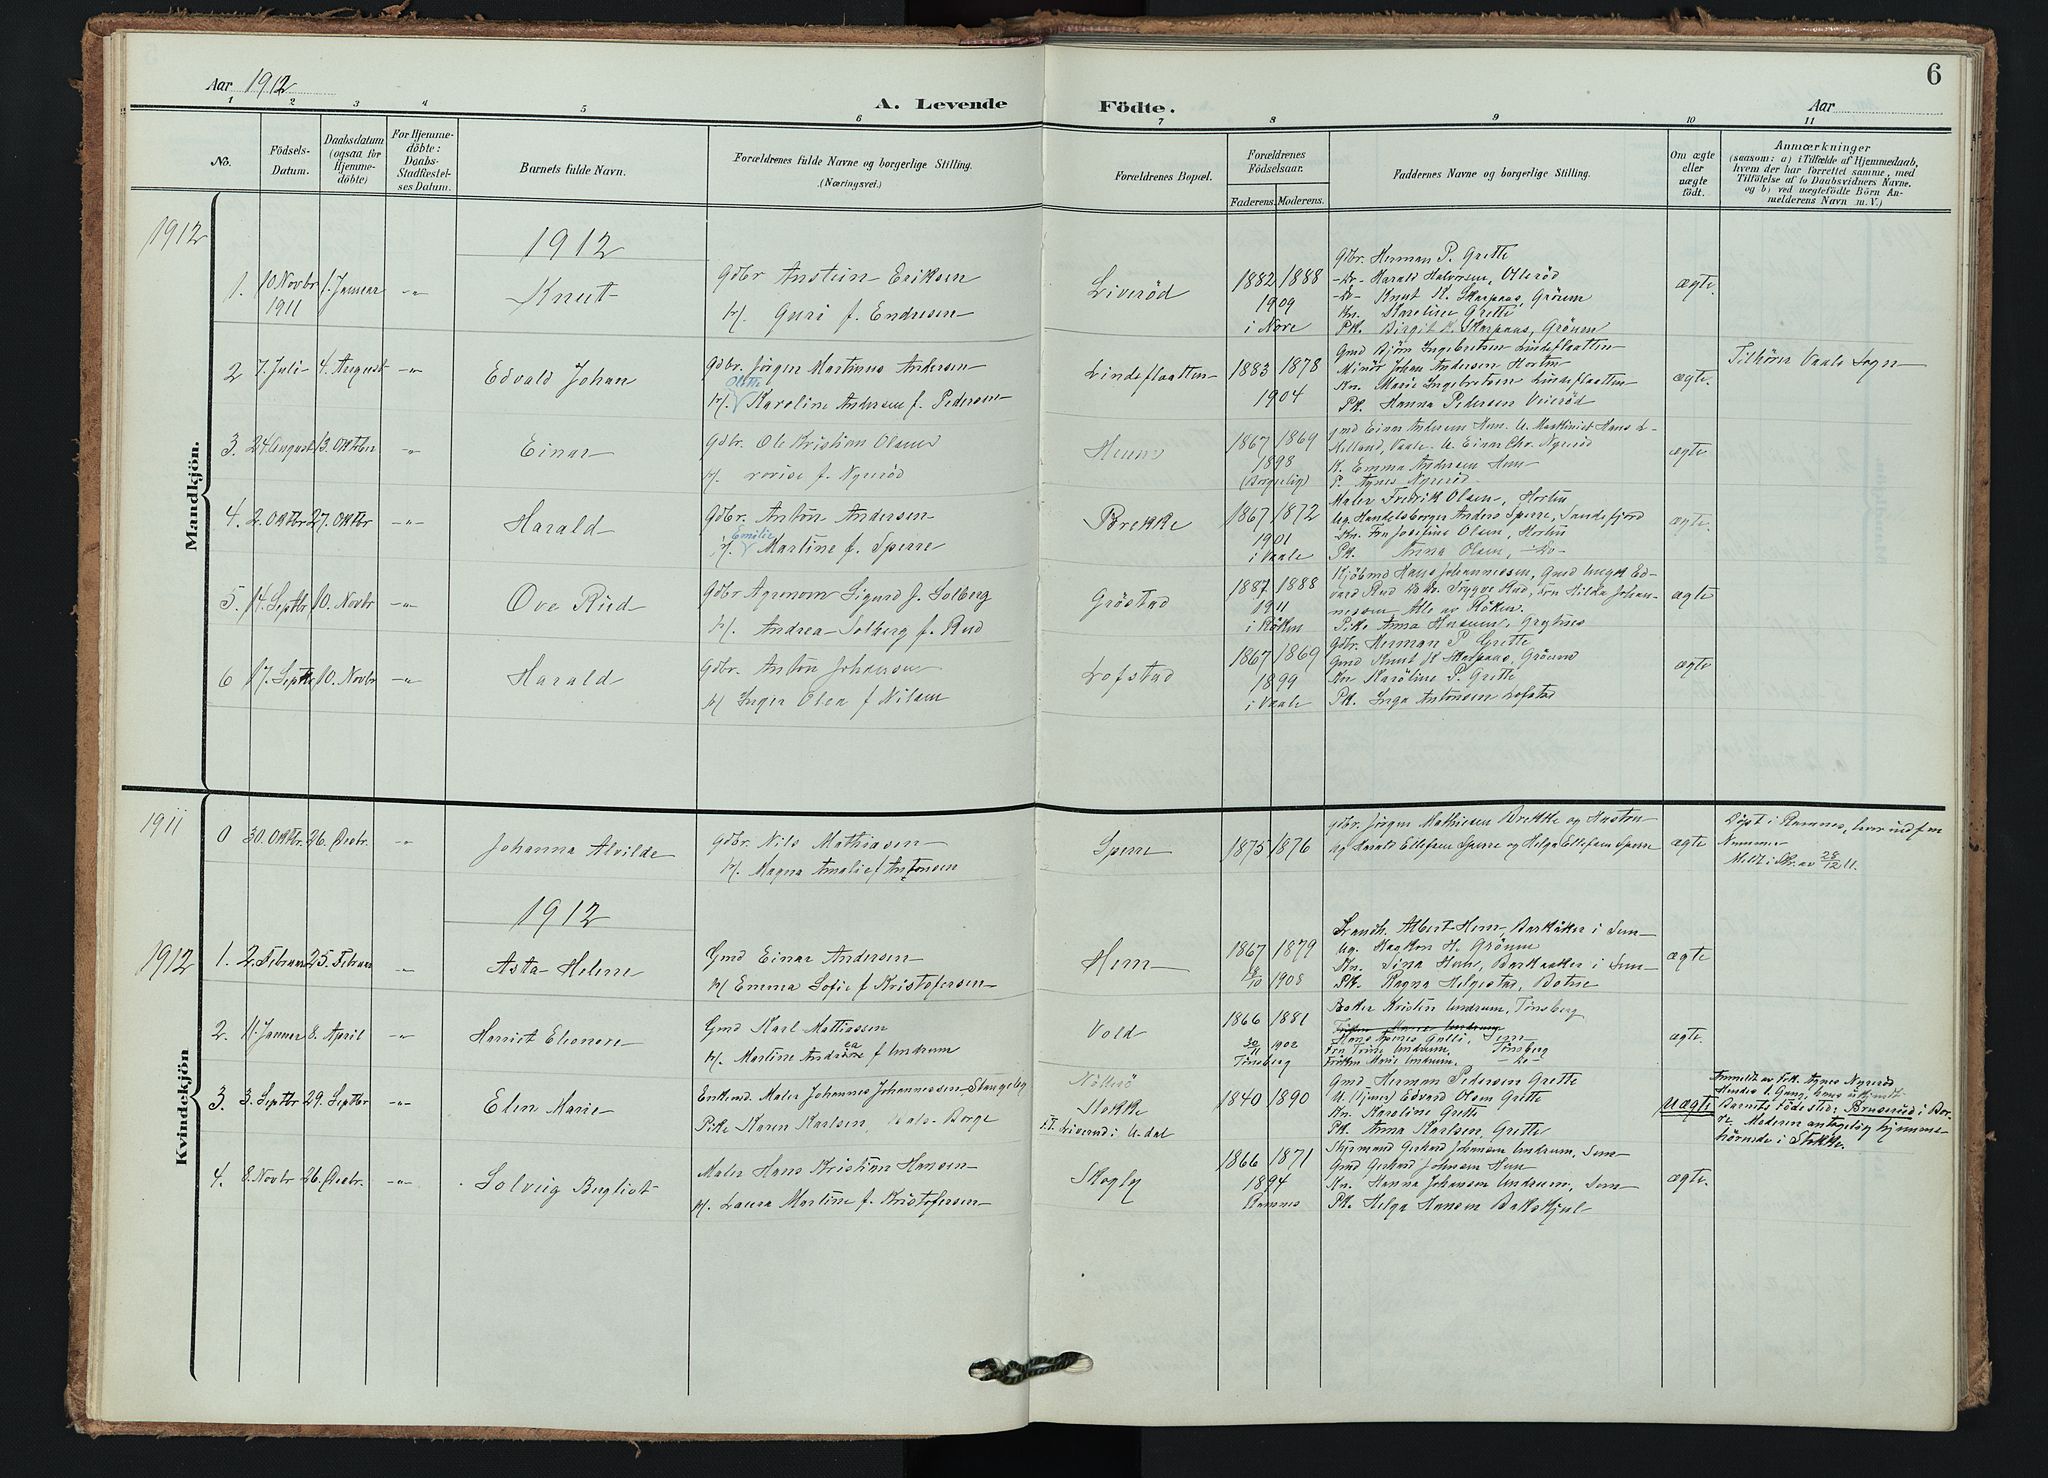 Aar 1912
A. Levende Födte.
Aar
6
1 2 3 4 5 6 7 8 9 10 11
No.
Födsels-Datum.
Daabsdatum (ogsaa for Hjemme-döbte)
For Hjemme-döbte: Daabs-Stadfæstel-ses Datum.
Barnets fulde Navn.
Forældrenes fulde Navne og borgerlige Stilling.
(Næringsvei.)
Forældrenes Bopæl.
Forældrenes Födselsaar.
Faderens. Moderens.
Faddernes Navne og borgerlige Stilling.
Om ægte eller uægte födt.
Anmærkninger
(saasom: a) i Tilfælde af Hjemmedaab,
hvem der har forrettet samme, med
Tilföielse af to Daabsvidners Navne,
og b) ved uægtefödte Börn An-
melderens Navn m. V.)
Mandkjön.
1912
1912
1. 10 Novbr 1911 1. Januar -"- Knut
Gdbr Anstein Eriksen
H. Guri f. Endresen
Liverød
1882 1888
1909
i Nore
Gbr. Herman P. Grette
-Do- Harald Halvorsen, Ollerød
-Do- Knut K. Skarpaas, Gröum
Kn. Karoline Grette
Pk. Birgit K. Skarpaas, Gröum
ægte.
2 7. Juli 4. August -"- Edvald Johan
Gdbr. Jörgen Martinus Andersen
Olette
H. V Karoline Andersen f. Pedersen
Lindeflaatten
1883 1878
1904
Gmd Bjørn Ingebretsen Lindeflaatten
Minör Johan Andersen Horten
Kn. Marie Ingebretsen Lindeflaatten
Pk. Hanna Pedersen Veierød
ægte.
Tilhörer Vaale Sogn
3. 24 August 13. Oktober " Einar
Gdbr. Ole Kristian Olsen
H. f. Nyerød
Hem
1867 1869
1898
(Borgerlig)
Gmd Einar Andersen Hem. U. Maskinist Hans L-
Melland, Vaale. U. Einar Chr. Nyerød
K. Emma Andersen Hem
P. Agnes Nyerød
ægte
4. 2. Oktbr 27. Oktbr -"- Harald
Gdbr. Anton Andersen
Emilie
H. V Martine f. Sperre
Brekke
1867 1872
1901
i Vaale
Maler Fredrik Olsen, Horten
Ug. Handelsborger Anders Sperre, Sandefjord
Kn. Fru Josefine Olsen, Horten
Pk. Anna Olsen, -Do-
ægte.
5. 14. Septbr 10. Novbr -"- Ove Rud
Gdbr Agronom Sigurd J. Solberg
H. Andrea Solberg f. Rud
Gröstad
1887 1888
1911
i Röken
Kjöbmd Hans Johannessen, Gmd Ungk Ed-
vard Rud Do Do. Trygve Rud, Frn Hilda Johan-
nessen. Alle av Röken.
Pk. Anna
ægte
6 17. Septbr 10. Novbr -"- Harald
Gdbr. Anton Johansen
H. Inger Olea f Nilsen
Lofstad
1867 1869
1899
i Vaale
Gdbr. Herman P. Grette
Gmd Knut K Skarpaas, Gröum
Kn Karoline P. Grette
Pk. Inga Antonsen Lofstad
ægte
Kvindekjön
1911
0 30. Oktbr. 26. Decbr. " Johanna Alvilde
Gdbr. Nils Mathiasen
H. Magna Amalie f Antonsen
Sperre
1875 1876
Gdbr. Jörgen Mathiesen Brekke og Hustru
og Harald Ellefsen Sperre og Helga Ellefsen Sperre
ægte
Döpt i Ramnes, her indf. u.
Nummer
Meldt i Skr. av 28/12 11.
1912
1912
1. 2. Februar 25. Februar " Asta Helene
Gmd Einar Andersen
H. Emma Sofie f Kristofersen
Hem
1867 1879
18/10 1908
Albert Hem, Barkaaker i Sem
Ug. Haakon H. Gröum
Kn. Tina Hem, Barkaaker i Sem
Pk. Ragna Helgestad, Botne
ægte
2. 11. Januar 8. April " Harriet Eleonore
Gmd Karl Mathiassen
H. Martine Andrea f Undrum
Vold
1866 1881
30/11 1902
Tönsberg
Baker Kristen Undrum, Tönsberg
Frk Trine Undrum. Tönsberg
Fröken Marie Undrum -Do-
ægte.
3. 3. Septbr 29. Septbr -"- Elen Marie
Enkemd. Maler Johannes Johannessen Stangeby
Pike Karen Karlsen, Borge
Nötterö
Stokke
F.T. Liverud i U-dal
1840 1890
Gmd Herman Pedersen Grette
U. (Tjener) Edvard Olsen Grette
Kn. Karoline Grette
Pk. Anna Karlsen, Grette
Uægte
Anmeldt av Frk. Agnes Nyerød
Hendes 1. Gang, hans ukjendt
Barnets Födested: Bruserud i Bor-
re. Moderen antagelig hjemme-
hörende i Stokke.
4. 8. Novbr 26. Decbr. -"- Solveig Bergliot
Maler Hans Kristian Hansen
H. Laura Martine f. Kristofersen
Skogly
1866 1871
1894
Ramnes
Styrmand Gerhard Johansen Undrum, Sem
Gmd Gerhard Johnsen Hem
Kn. Hanna Johansen Undrum, Sem
Pk. Helga Hansen Bakskjul
ægte.